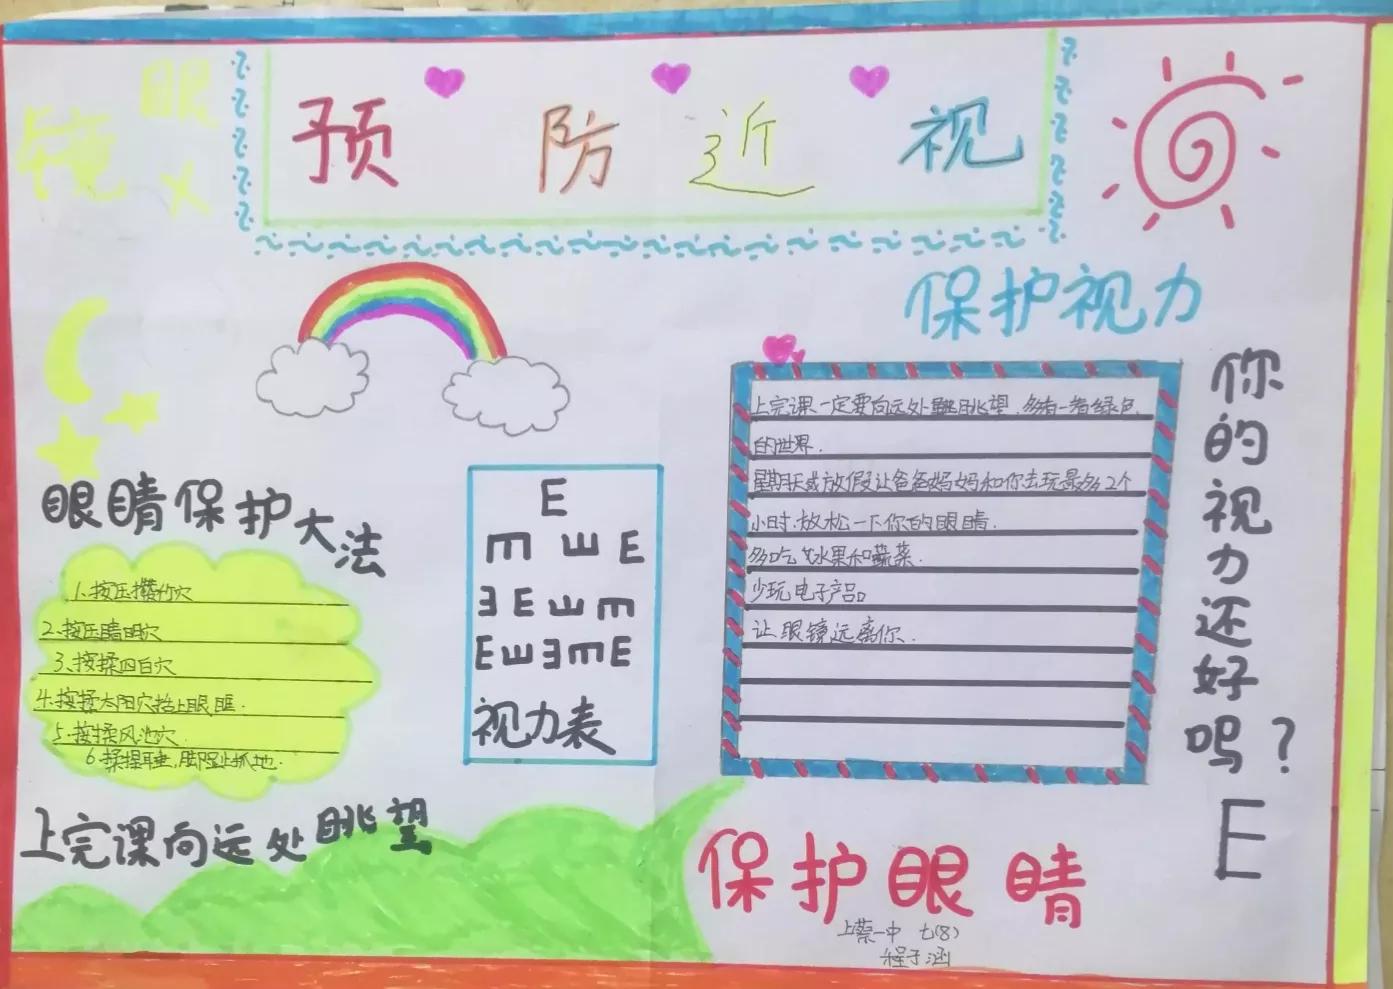 预防近视
眼
镜
×
保护视力
上完课一定要向远处眺望.多看一看绿色
的世界.
星期天或放假让爸爸妈妈和你去玩最多2个
小时.放松一下你的眼睛.
多吃水果和蔬菜.
少玩电子产品
让眼镜远离你.
你的视力还好吗?
E
眼睛保护大法
1.按压攒竹穴
2.按压睛明穴
3.按揉四白穴
4.按揉太阳穴 眼眶.
5.按揉风池穴.
6.揉捏耳垂,脚趾抓地.
E
E E E
E E E E
E E E E E
视力表
上完课向远处眺望
保护眼睛
上蔡一中 七(8)
程子涵